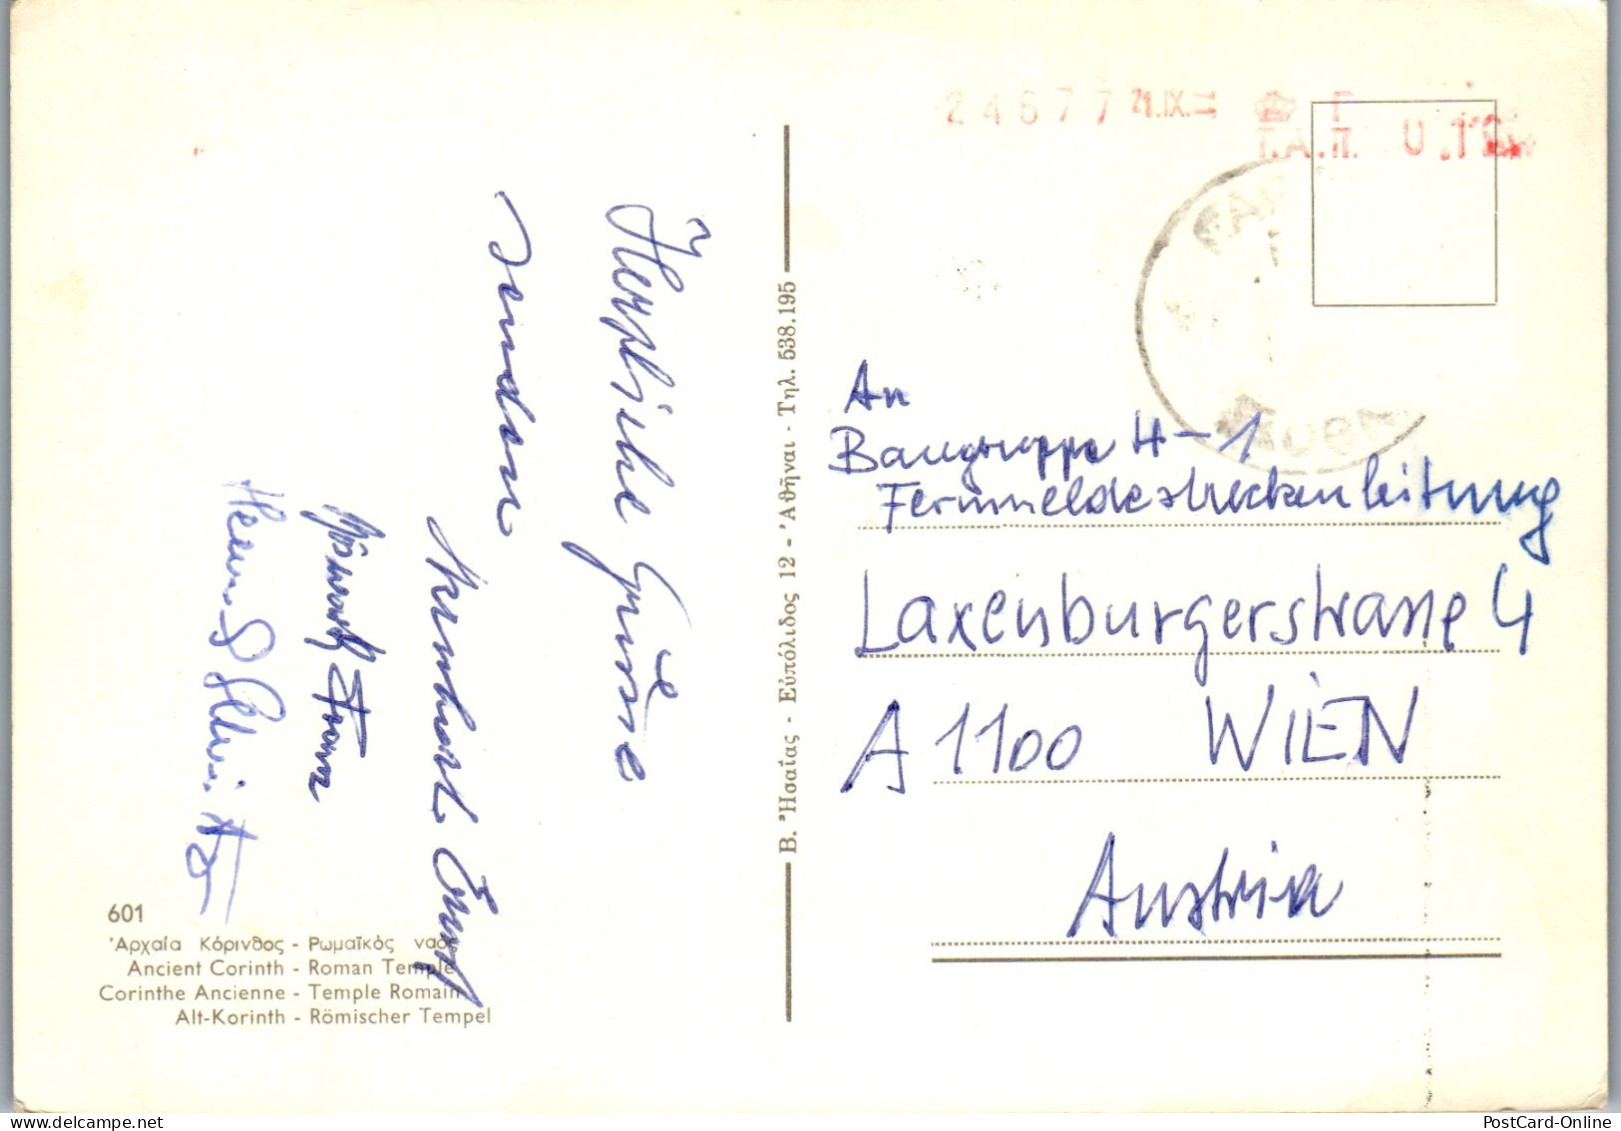 Herzliche Grüsse
senden
Franz
601
Ἀρχαία Κόρινθος - Ρωμαϊκὸς ναός
Ancient Corinth - Roman Temple
Corinthe Ancienne - Temple Romain
Alt-Korinth - Römischer Tempel
Β. Ἠσαΐας - Εὐπόλιδος 12 - Ἀθῆναι - Τηλ. 538.195
24677 21.IX.
Τ.Α.Π.
An
Baugruppe H-1
Fernmeldestreckenleitung
Laxenburgerstrasse 4
A 1100 WIEN
Austria
PostCard-Online